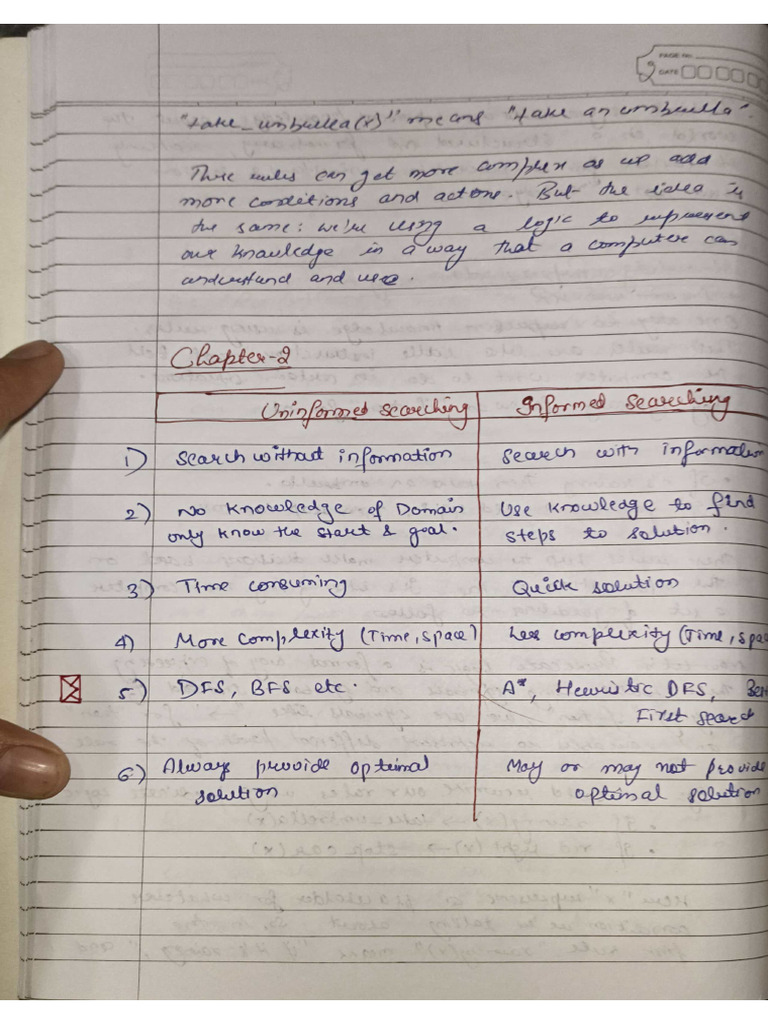 PAGE No.
DATE
"take_umbrella(x)" means "take an umbrella".
These rules can get more complex as we add
more conditions and actions. But the idea is
the same: we're using a logic to represent
our knowledge in a way that a computer can
understand and use.
Chapter-2
Uninformed searching Informed Searching
1) Search without information Search with information
2) No knowledge of Domain Use knowledge to find
only know the start & goal. steps to solution.
3) Time consuming Quick solution
4) More complexity (Time, space) Less complexity (Time, spac
5) DFS, BFS etc. A*, Heuristic DFS, Bes
First search
6) Always provide optimal May or may not provide
solution optimal solution